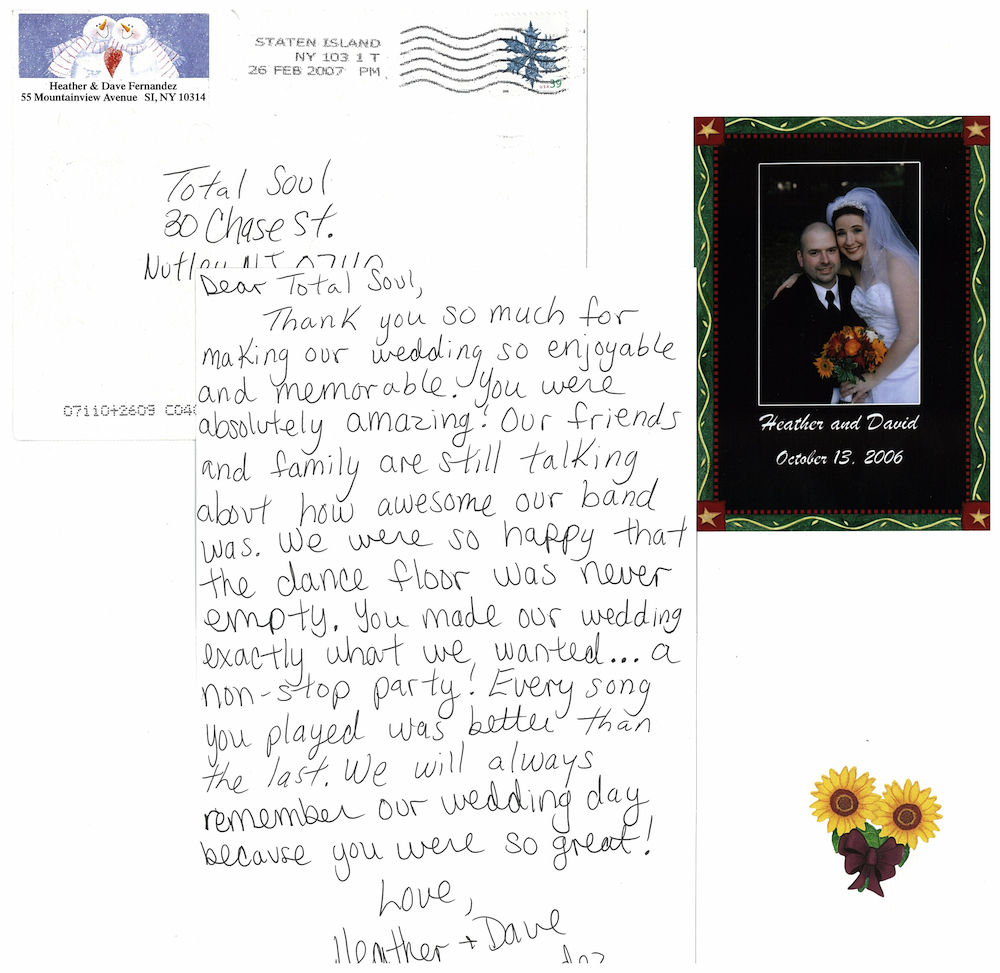 Heather & Dave Fernandez
55 Mountainview Avenue SI, NY 10314
STATEN ISLAND
NY 103 1 T
26 FEB 2007 PM
USA 39
Total Soul
30 Chase St.
Nutley NJ 07110
07110+2609
Dear Total Soul,
Thank you so much for
making our wedding so enjoyable
and memorable. You were
absolutely amazing! Our friends
and family are still talking
about how awesome our band
was. We were so happy that
the dance floor was never
empty. You made our wedding
exactly what we wanted... a
non-stop party! Every song
you played was better than
the last. We will always
remember our wedding day
because you were so great!
Love,
Heather + Dave
Heather and David
October 13, 2006